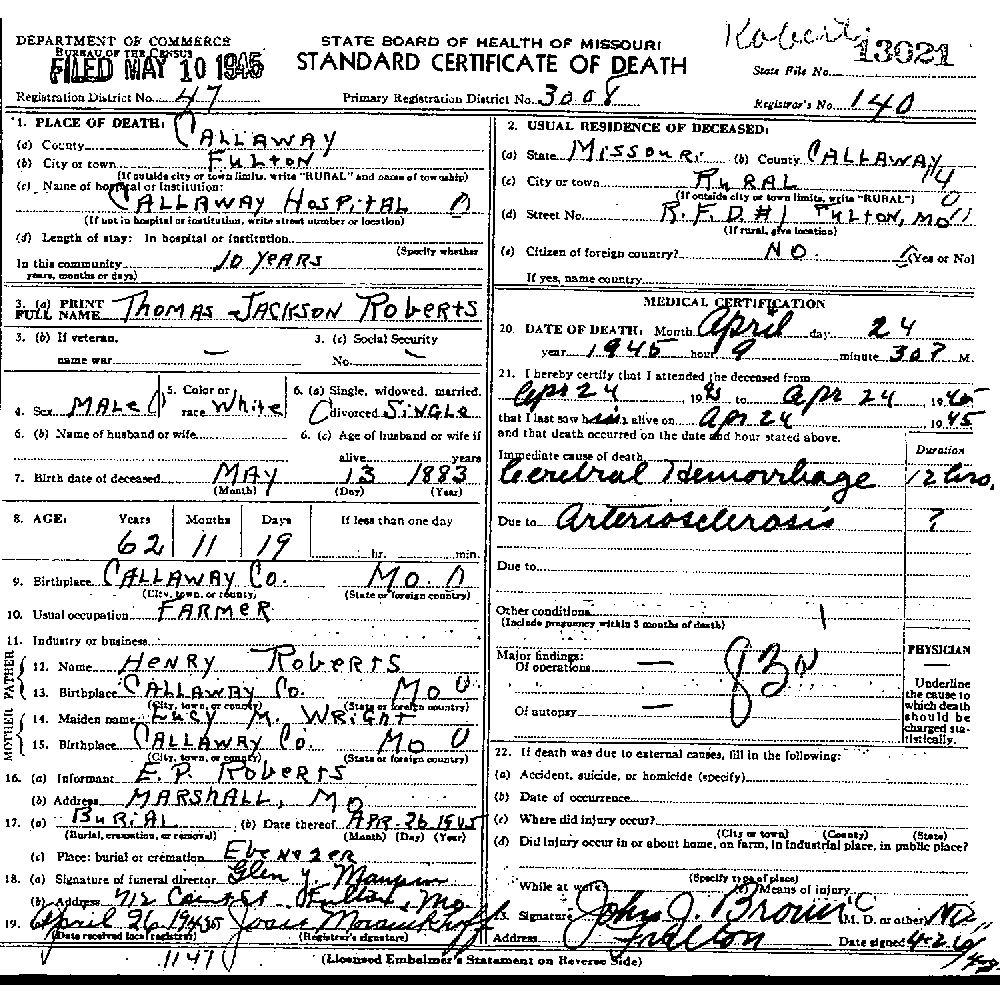 Roberts
DEPARTMENT OF COMMERCE
BUREAU OF THE CENSUS
FILED MAY 10 1945
STATE BOARD OF HEALTH OF MISSOURI
STANDARD CERTIFICATE OF DEATH
State File No. 13021
Registration District No. 47
Primary Registration District No. 3008
Registrar's No. 140
1. PLACE OF DEATH:
(a) County CALLAWAY
(b) City or town FULTON
(If outside city or town limits, write "RURAL" and name of township)
(c) Name of hospital or institution:
CALLAWAY HOSPITAL
(If not in hospital or institution, write street number or location)
(d) Length of stay: In hospital or institution
(Specify whether
In this community 10 YEARS
years, months or days)
2. USUAL RESIDENCE OF DECEASED:
(a) State MISSOURI (b) County CALLAWAY 14
(c) City or town RURAL 0
(If outside city or town limits, write "RURAL")
(d) Street No. R.F.D.#1 FULTON, MO
(If rural, give location)
(e) Citizen of foreign country? NO. (Yes or No)
If yes, name country
3. (a) PRINT FULL NAME THOMAS JACKSON ROBERTS
3. (b) If veteran, name war —
3. (c) Social Security No. —
4. Sex MALE
5. Color or race White
6. (a) Single, widowed, married, divorced SINGLE
6. (b) Name of husband or wife
6. (c) Age of husband or wife if alive years
7. Birth date of deceased MAY 13 1883
(Month) (Day) (Year)
8. AGE: Years Months Days If less than one day
62 11 19 hr. min.
9. Birthplace CALLAWAY CO. MO.
(City, town, or county) (State or foreign country)
10. Usual occupation FARMER
11. Industry or business
FATHER
12. Name HENRY ROBERTS
13. Birthplace CALLAWAY CO. MO
(City, town, or county) (State or foreign country)
MOTHER
14. Maiden name LUCY M. WRIGHT
15. Birthplace CALLAWAY CO. MO
(City, town, or county) (State or foreign country)
16. (a) Informant E.P. ROBERTS
(b) Address MARSHALL, MO
17. (a) BURIAL (b) Date thereof APR. 26 1945
(Burial, cremation, or removal) (Month) (Day) (Year)
(c) Place: burial or cremation EBENEZER
18. (a) Signature of funeral director Glen Y. Maupin
(b) Address 712 Court St Fulton, Mo
19. April 26, 1945 Josie
(Date received local registrar) (Registrar's signature)
1147
MEDICAL CERTIFICATION
20. DATE OF DEATH: Month April day 24
year 1945 hour 9 minute 30 P M.
21. I hereby certify that I attended the deceased from
Apr 24 1945 to Apr 24 1945
that I last saw him alive on Apr 24 1945
and that death occurred on the date and hour stated above.
Duration
Immediate cause of death
Cerebral Hemorrhage 12 hrs.
Due to Arteriosclerosis ?
Due to
Other conditions
(Include pregnancy within 3 months of death)
Major findings:
Of operations —
Of autopsy —
83a
PHYSICIAN
Underline the cause to which death should be charged statistically.
22. If death was due to external causes, fill in the following:
(a) Accident, suicide, or homicide (specify)
(b) Date of occurrence
(c) Where did injury occur?
(City or town) (County) (State)
(d) Did injury occur in or about home, on farm, in industrial place, in public place?
(Specify type of place)
While at work (e) Means of injury
23. Signature John J. Brown (M. D. or other)
Address Fulton Date signed 4-26
(Licensed Embalmer's Statement on Reverse Side)